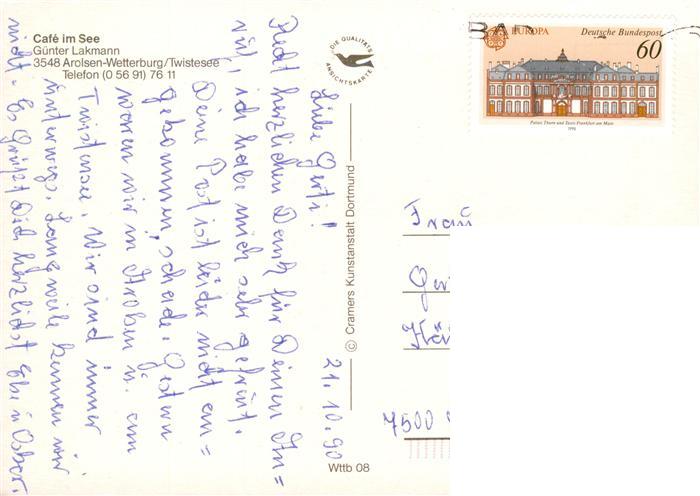 Café im See
Günter Lakmann
3548 Arolsen-Wetterburg/Twistesee
Telefon (0 56 91) 76 11
DIE QUALITÄTS
ANSICHTSKARTE
EUROPA
Deutsche Bundespost
60
Palais Thurn und Taxis Frankfurt am Main
1990
© Cramers Kunstanstalt Dortmund
Wttb 08
21.10.90
Liebe Gerti!
Recht herzlichen Dank für Deinen An=
ruf, ich habe mich sehr gefreut,
Deine Post ist leider nicht an=
gekommen, schade. Gestern
waren wir in Arolsen u. am
Twistesee. Wir sind immer
unterwegs, Langweile kennen wir
nicht. Es Grüßt Dich herzlichst Ilse u Oskar.
Frau
7500